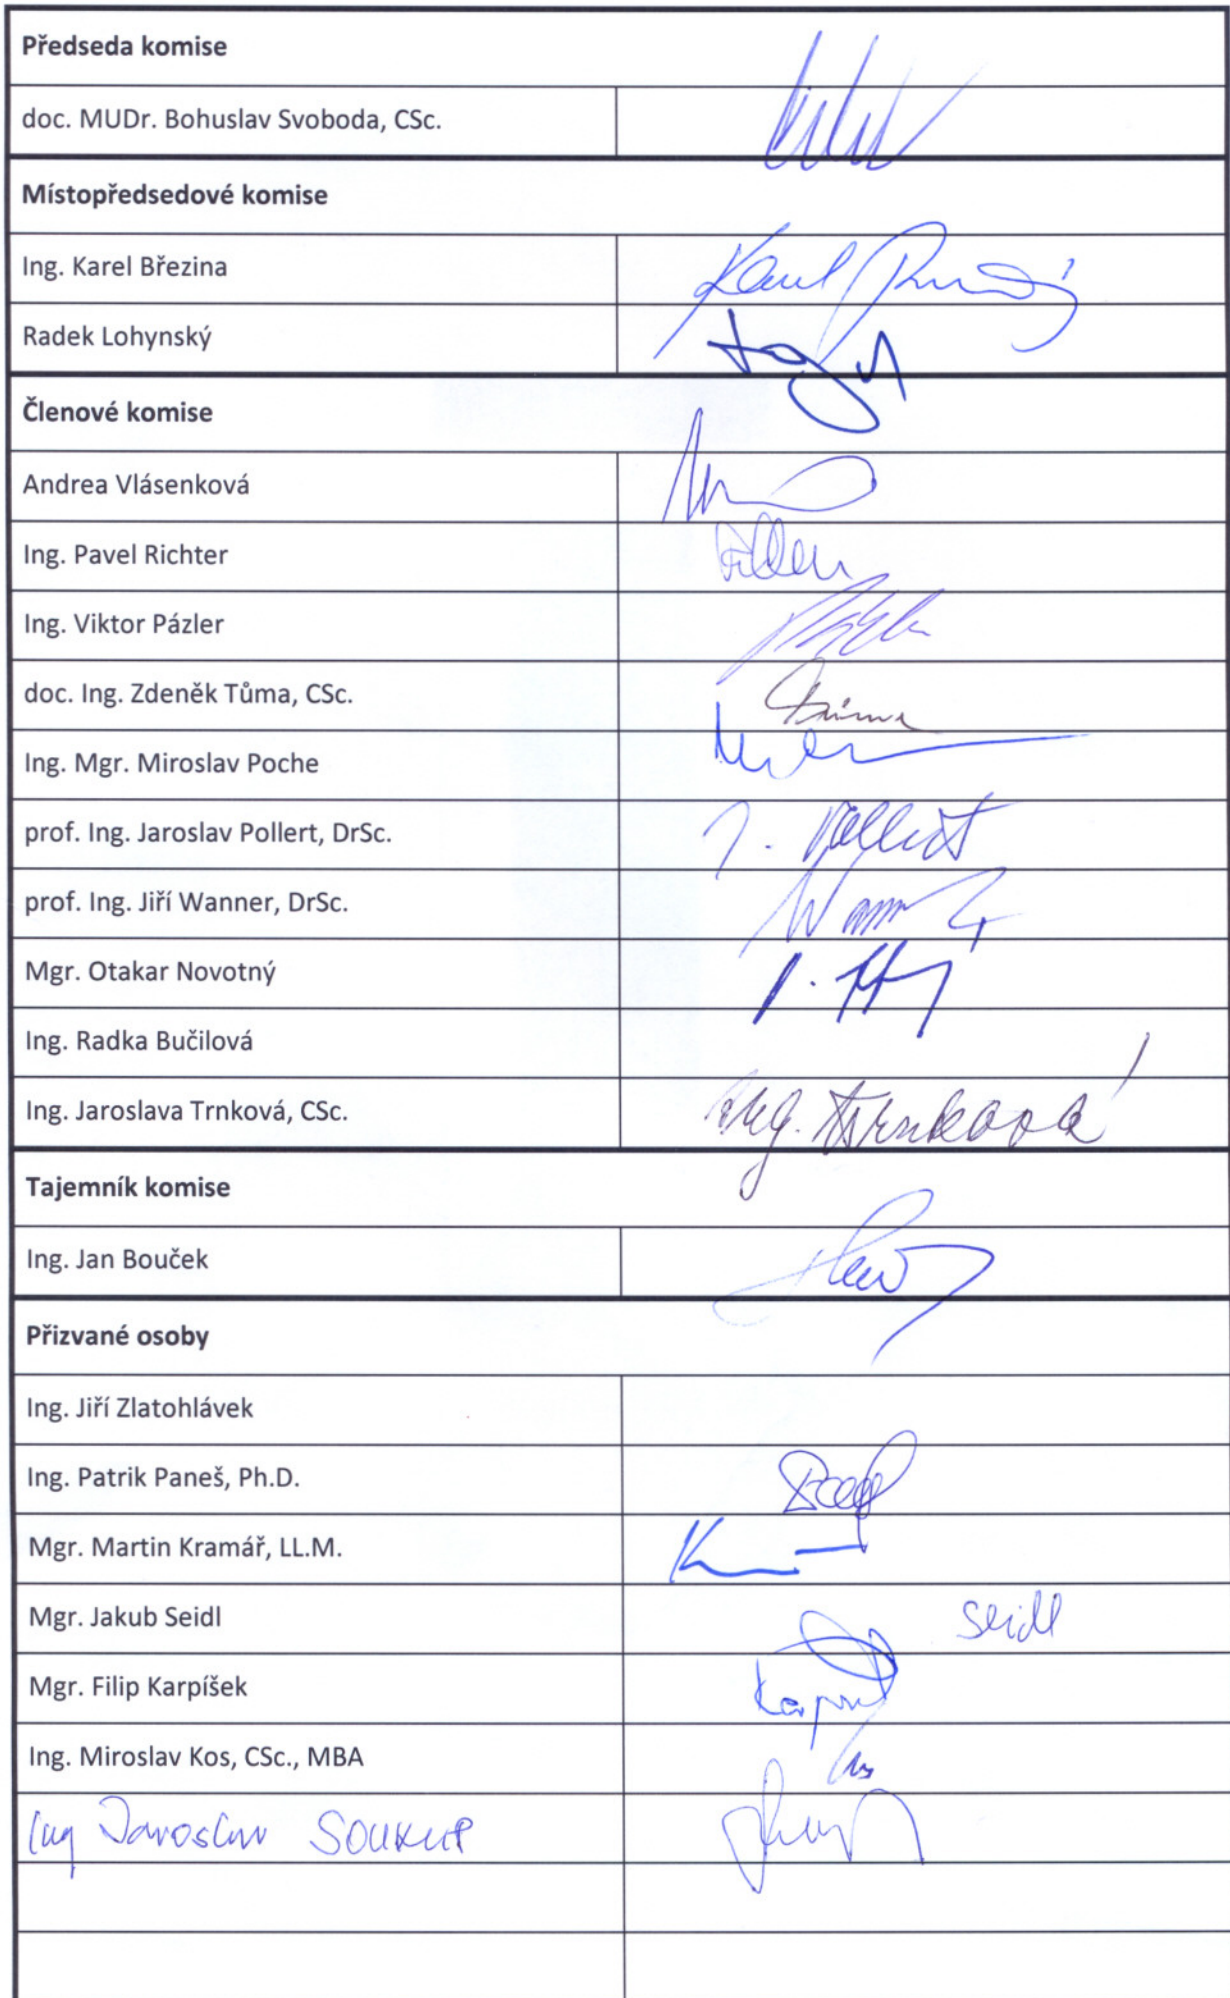 Předseda komise
doc. MUDr. Bohuslav Svoboda, CSc.
Místopředsedové komise
Ing. Karel Březina
Radek Lohynský
Členové komise
Andrea Vlásenková
Ing. Pavel Richter
Ing. Viktor Pázler
doc. Ing. Zdeněk Tůma, CSc.
Ing. Mgr. Miroslav Poche
prof. Ing. Jaroslav Pollert, DrSc.
J. Pollert
prof. Ing. Jiří Wanner, DrSc.
Mgr. Otakar Novotný
Ing. Radka Bučilová
Ing. Jaroslava Trnková, CSc.
Ing. Trnková
Tajemník komise
Ing. Jan Bouček
Přizvané osoby
Ing. Jiří Zlatohlávek
Ing. Patrik Paneš, Ph.D.
Mgr. Martin Kramář, LL.M.
Mgr. Jakub Seidl
Seidl
Mgr. Filip Karpíšek
Ing. Miroslav Kos, CSc., MBA
Ing Jaroslav SOUKUP